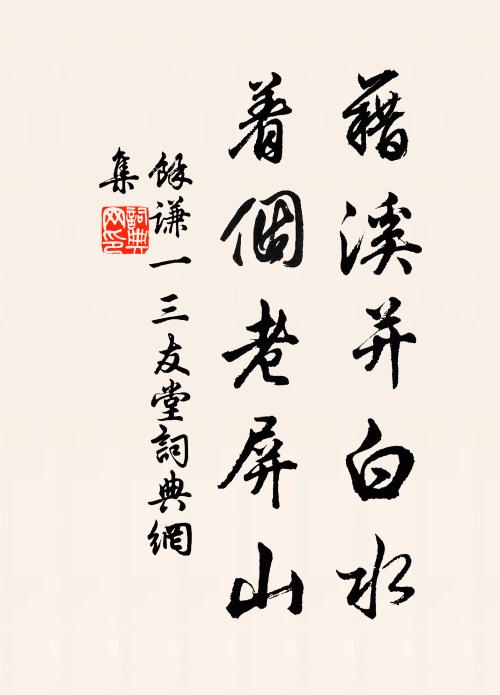 藉溪并白水
着個老屏山
餘謙一三友堂詞典網
集
詞典网印